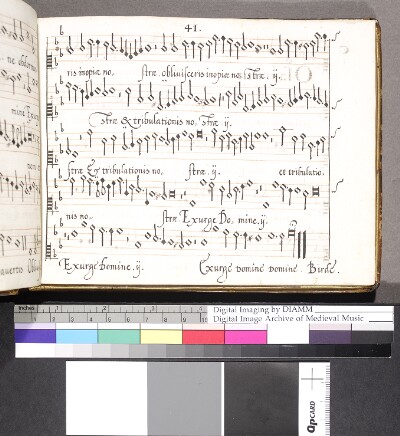 41.
ris inopiæ no, stræ. obliviſceris inopiæ no, ſtræ. ij.
ſtræ & tribulationis no, ſtræ ij.
ſtræ & tribulationis no, ſtræ. ij. et tribulatio.
nis no, ſtræ Exurge Do, mine. ij.
Exurge Domine. ij. Exurge Domine Domine. Birde.
Inches
Digital Imaging by DIAMM
Digital Image Archive of Medieval Music
QPCARD